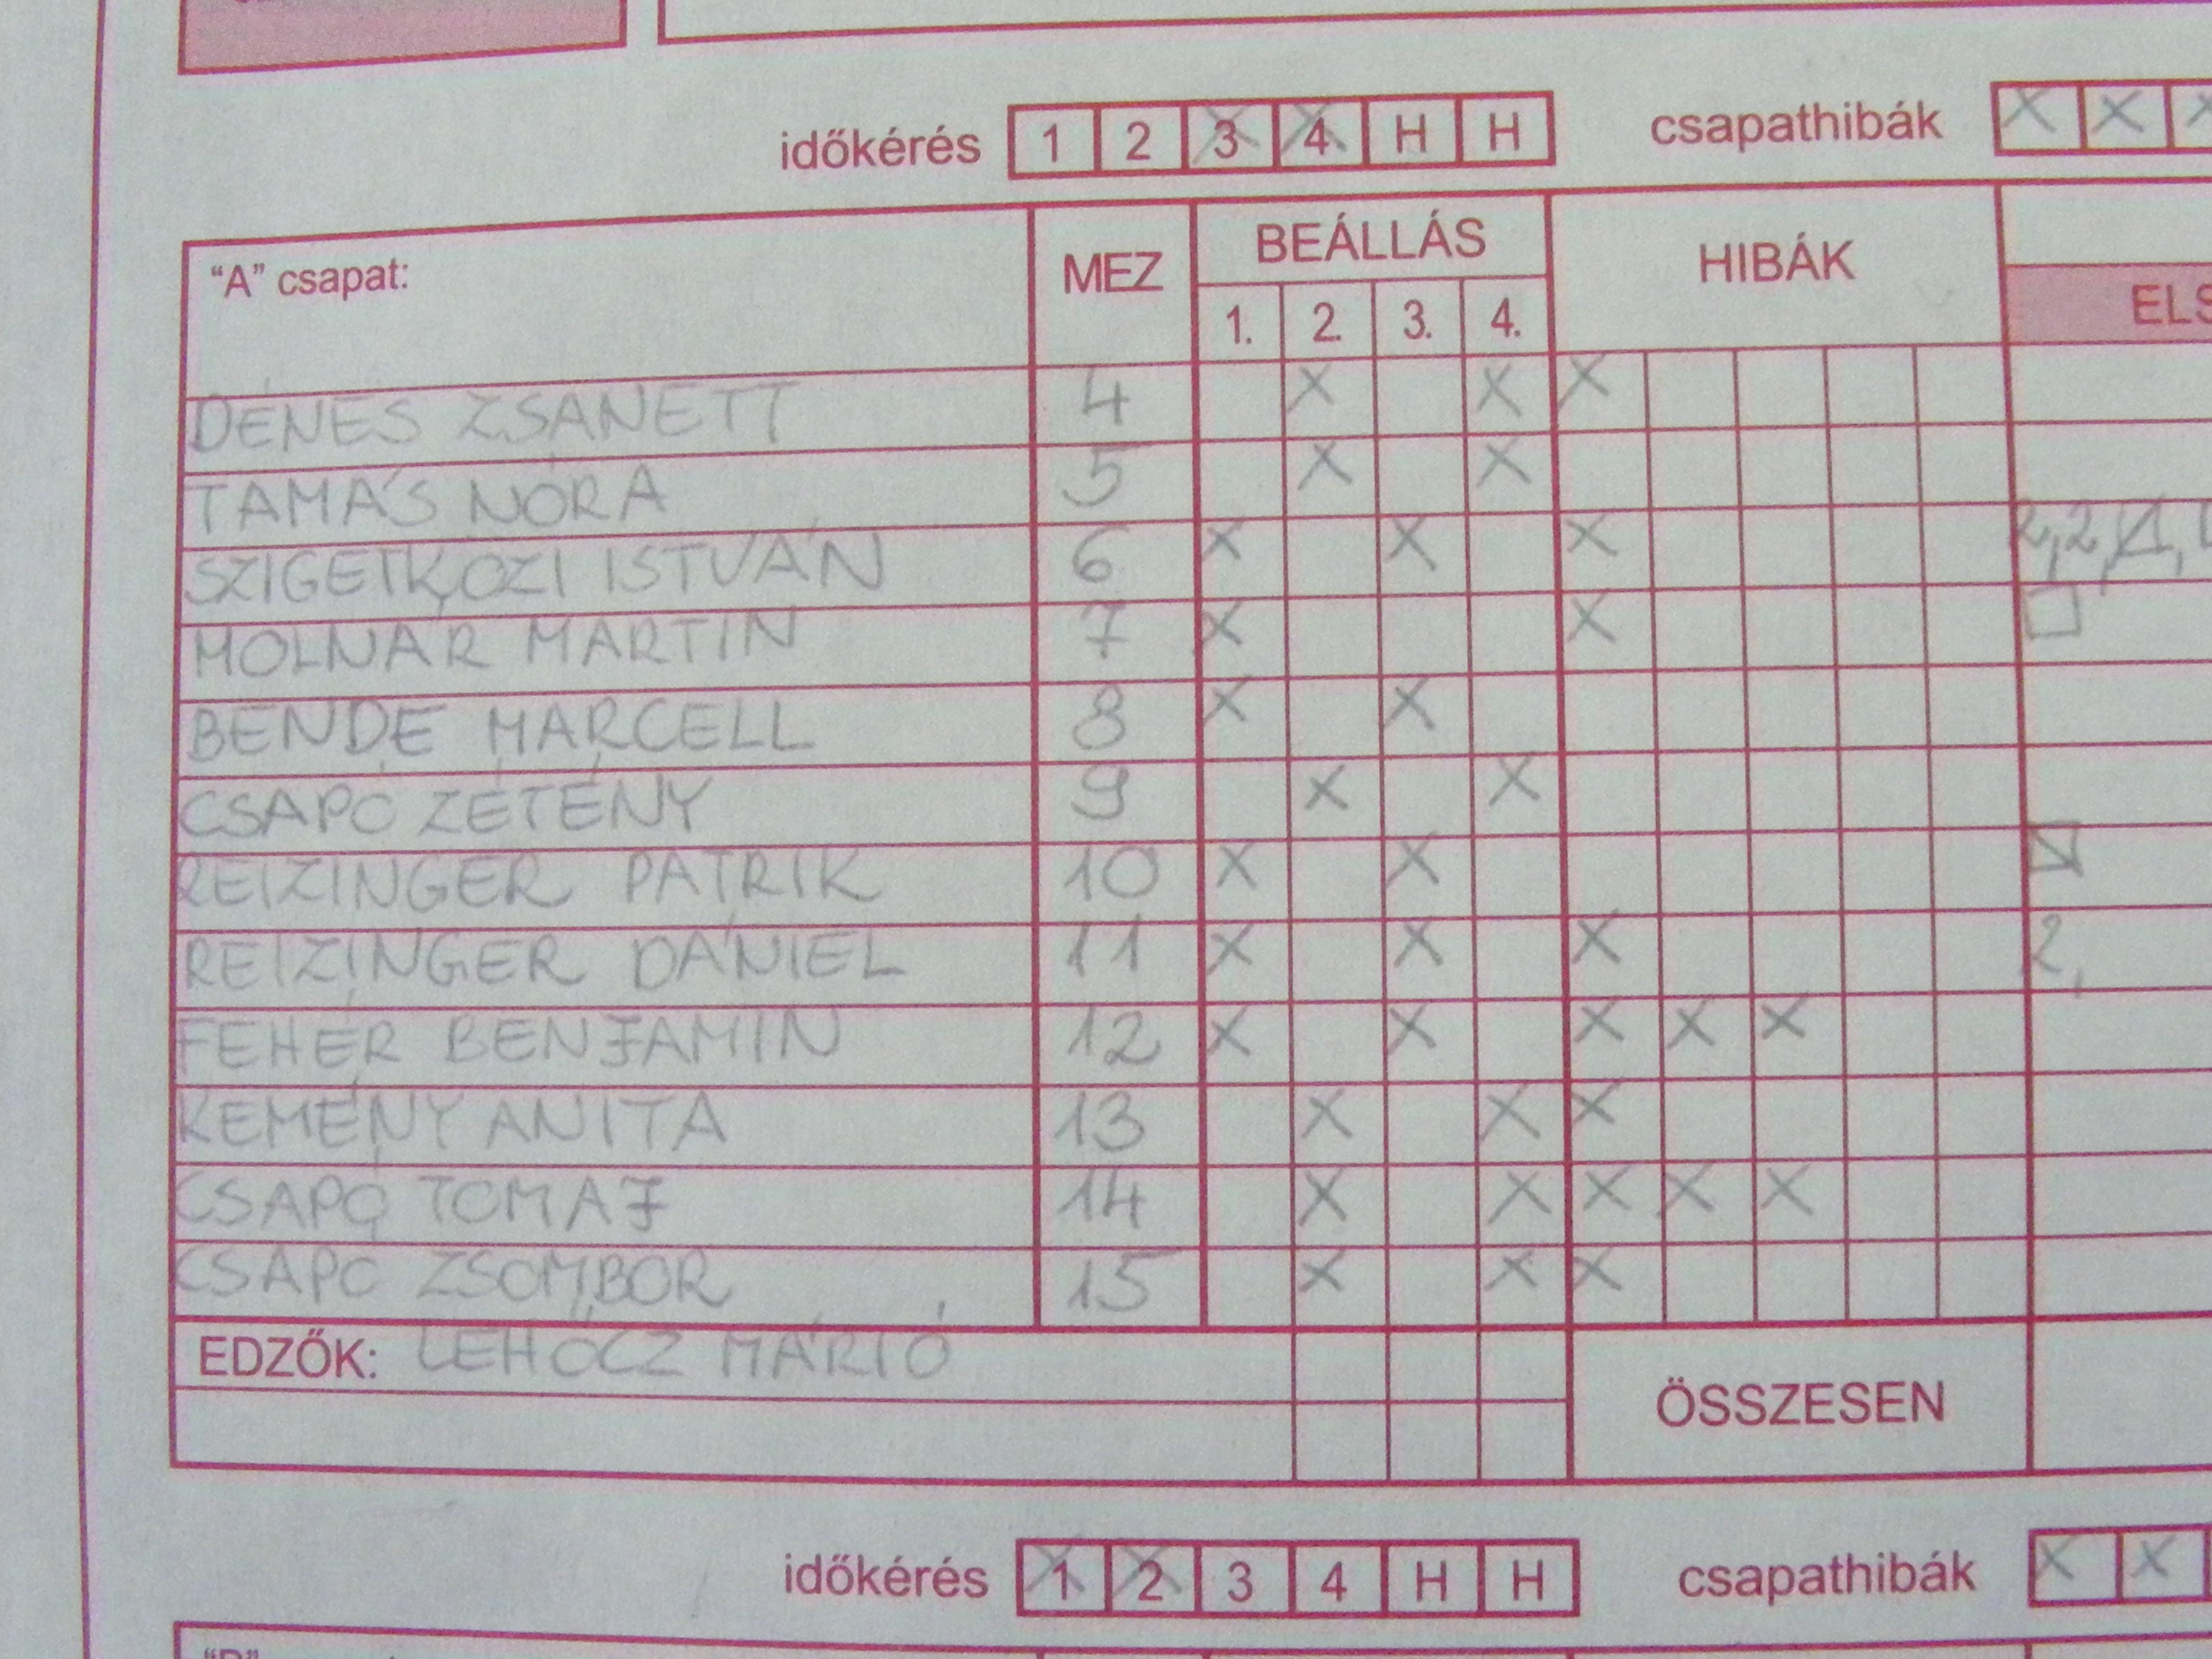 időkérés 1 2 3 4 H H csapathibák X X
"A" csapat: MEZ BEÁLLÁS HIBÁK
1. 2. 3. 4. ELS
DÉNES ZSANETT 4 X X X
TAMÁS NÓRA 5 X X
SZIGETKÖZI ISTVÁN 6 X X X 2,2,
MOLNÁR MARTIN 7 X X
BENDE MARCELL 8 X X
CSAPÓ ZÉTÉNY 9 X X
REIZINGER PATRIK 10 X X
REIZINGER DÁNIEL 11 X X X 2,
FEHÉR BENJAMIN 12 X X X X X
KEMÉNY ANITA 13 X X X
CSAPÓ TOMAJ 14 X X X X X
CSAPÓ ZSOMBOR 15 X X X
EDZŐK: LEHŐCZ MÁRIÓ
ÖSSZESEN
időkérés 1 2 3 4 H H csapathibák X X